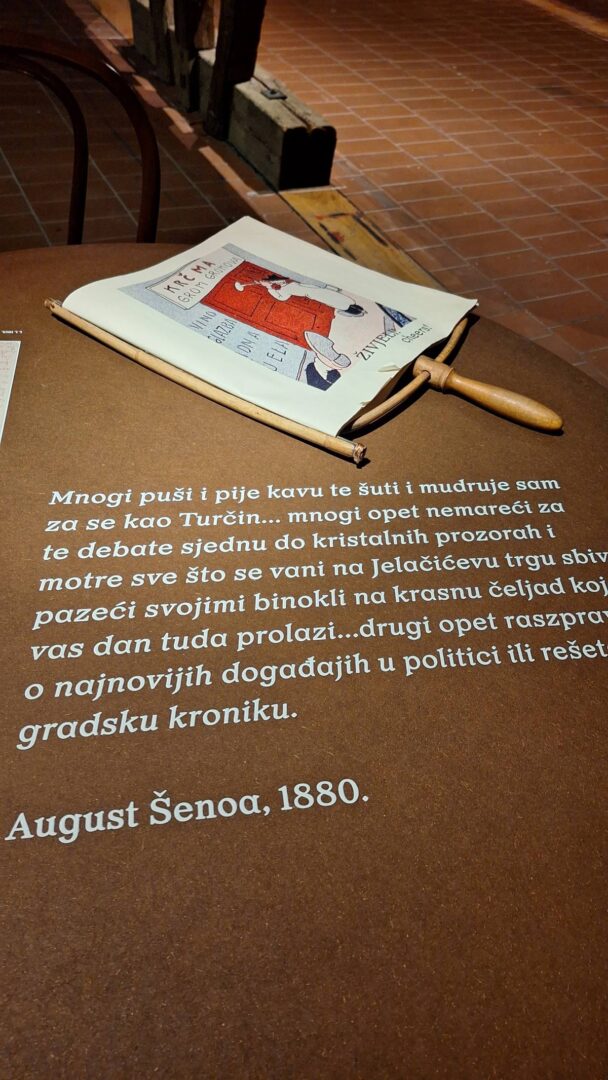 KRČMA
GROM GROMOVA
VINO
GAZBA
UELA
ŽIVJEL
cheers!
Mnogi puši i pije kavu te šuti i mudruje sam
za se kao Turčin... mnogi opet nemareći za
te debate sjednu do kristalnih prozorah i
motre sve što se vani na Jelačićevu trgu sbiv
pazeći svojimi binokli na krasnu čeljad koj
vas dan tuda prolazi...drugi opet raspra
o najnovijih događajih u politici ili rešet
gradsku kroniku.
August Šenoa, 1880.